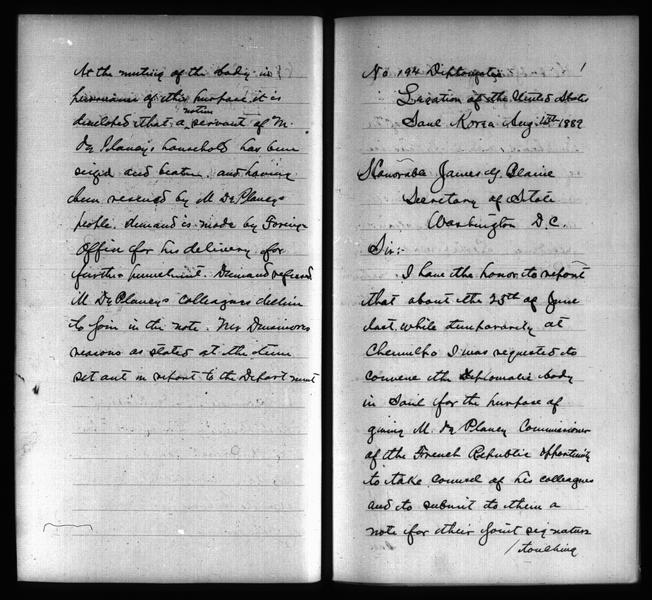 At the meeting of the body in
pursuance of this purpose it is
native
developed that a servant of M.
De Plancy's household has been
seized and beaten, and having
been rescued by M De Plancys
people, demand is made by Foreign
Office for his delivery for
further punishment. Demand refused
M DePlancys colleagues decline
to join in the note. Mr Dinsmores
reasons as stated at the time
set out in report to the Department
No 194 Diplomatic 1
Legation of the United States
Soul Korea Aug 1889
Honorable James G. Blaine
Secretary of State
Washington D.C.
Sir:-
I have the honor to report
that about the 25th of June
last while temporarily at
Chemulpo I was requested to
convene the Diplomatic body
in Soul for the purpose of
giving M. De Plancy Commissioner
of the French Republic opportunity
to take counsel of his colleagues
and to submit to them a
note for their joint signature
/touching